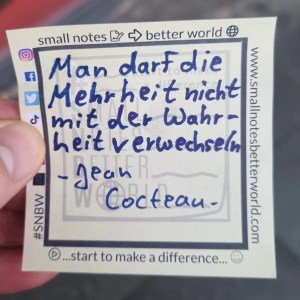 small notes better world
Man darf die
Mehrheit nicht
mit der Wahr-
heit verwechseln
- Jean
Cocteau -
#SNBW
www.smallnotesbetterworld.com
...start to make a difference...